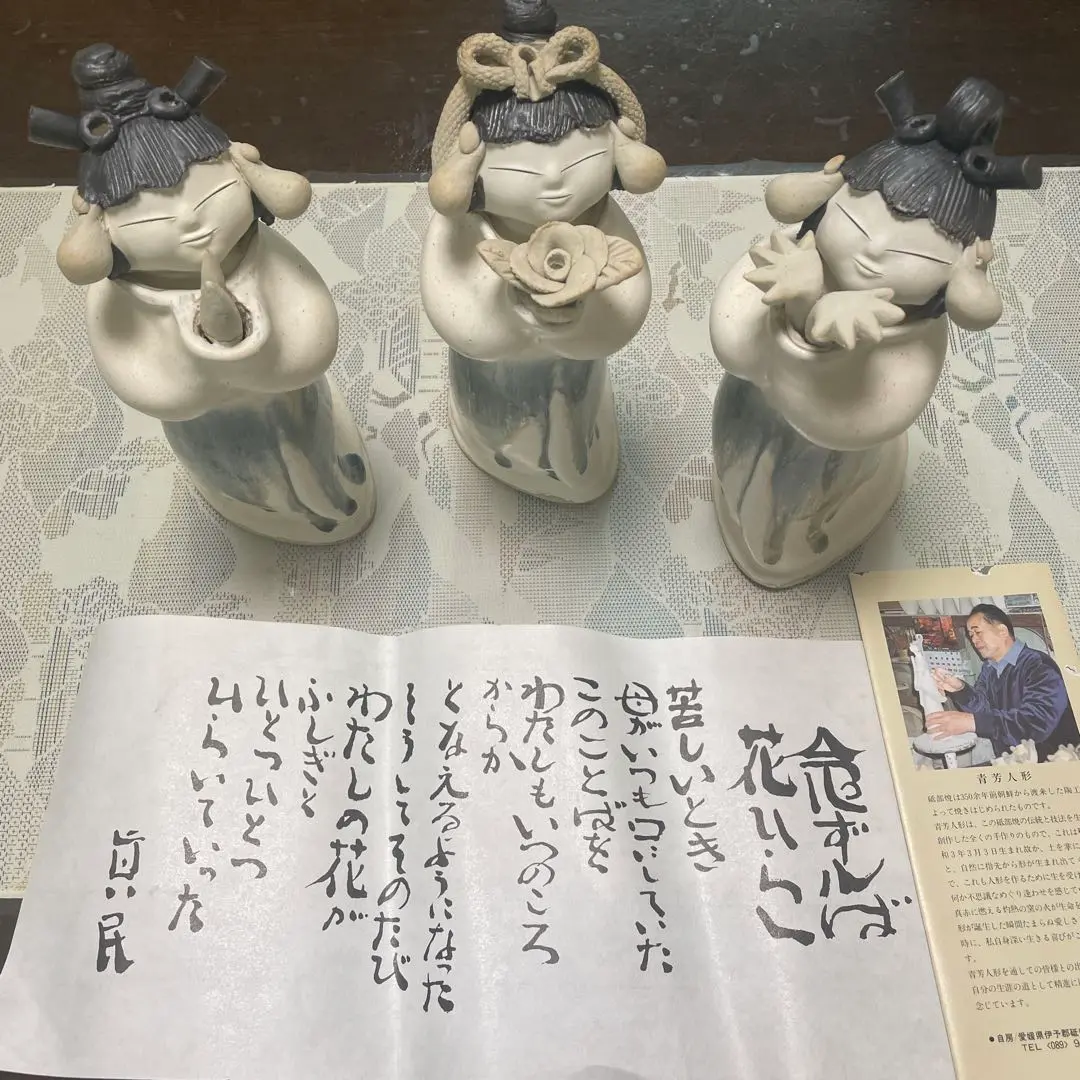 念ずれば
花ひらく
苦しいとき
母がいつも口にしていた
このことばを
わたしもいつのころ
からか
となえるようになった
そうしてそのたび
わたしの花が
ふしぎと
ひとつひとつ
ひらいていった
真民
青芳人形
砥部焼は350余年前朝鮮から渡来した陶工
よって焼きはじめられたものです。
青芳人形は、この砥部焼の伝統と技法を生
創作した全くの手作りのもので、これは
和3年3月3日生まれ故か、土を掌に
と、自然に指先から形が生まれ出て
で、これも人形を作るために生を受け
何か不思議なめぐり逢わせを感じて
真赤に燃える灼熱の窯の火が生命を
形が誕生した瞬間たまらぬ愛しさ
時に、私自身深い生きる喜びがこ
す。
青芳人形を通しての皆様との出
自分の生涯の道として精進に
念じています。
●自房/愛媛県伊予郡砥
TEL〈089〉9